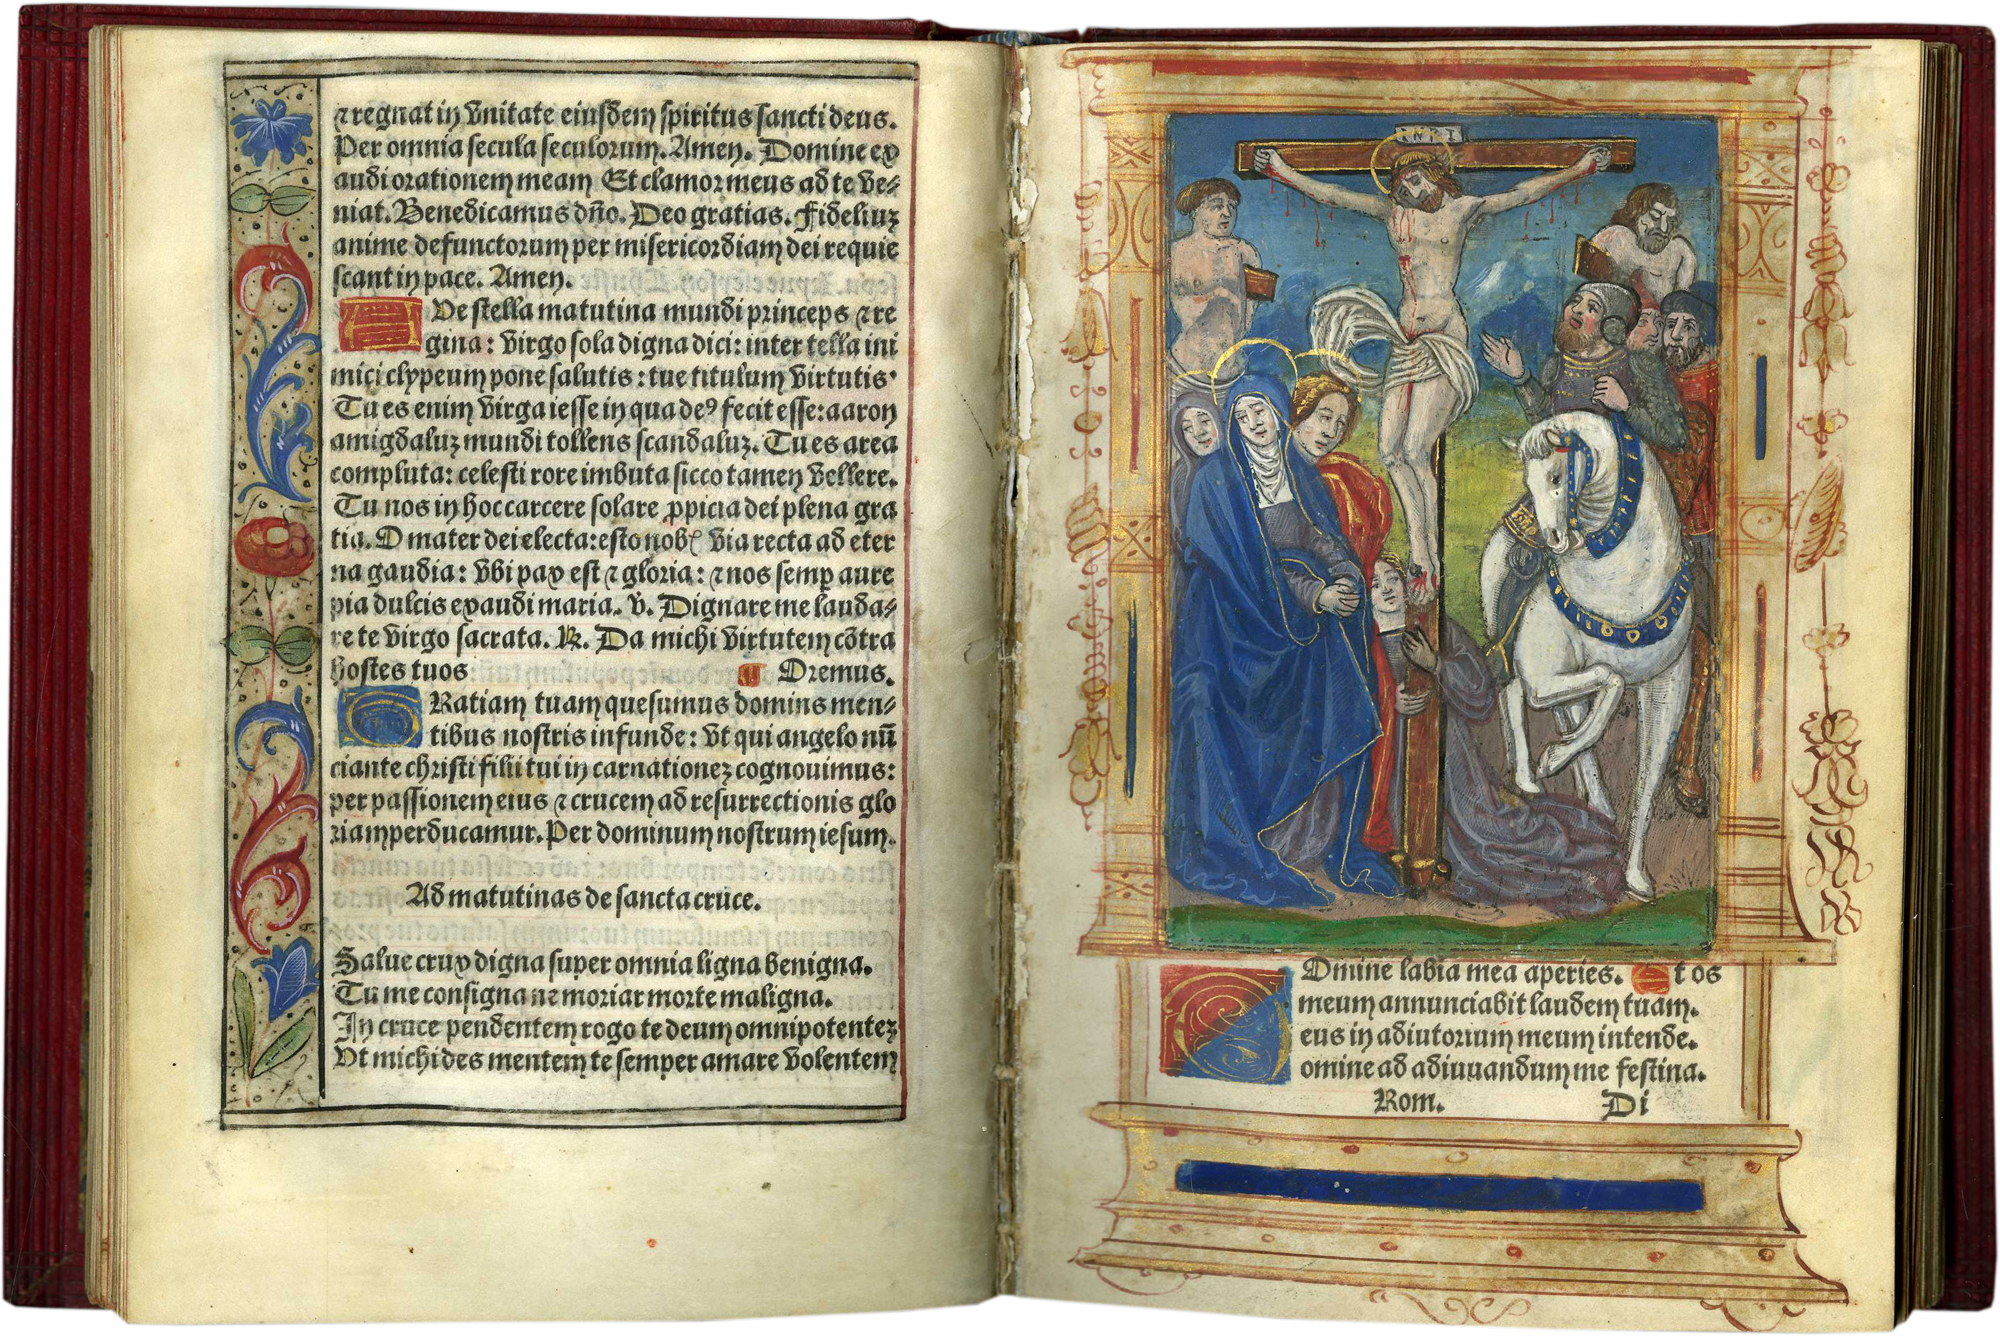 ⁊ regnat in vnitate eiusdem spiritus sancti deus.
Per omnia secula seculorum. Amen. Domine ex
audi orationem meam Et clamor meus ad te ve⸗
niat. Benedicamus dño. Deo gratias. Fideliuꝫ
anime defunctorum per misericordiam dei requie
scant in pace. Amen.
Ve stella matutina mundi princeps ⁊ re
gina: virgo sola digna dici: inter tella ini
mici clypeum pone salutis: tue titulum virtutis.
Tu es enim virga iesse in qua deꝰ fecit esse: aaron
amigdaluꝫ mundi tollens scandaluꝫ. Tu es area
compluta: celesti rore imbuta sicco tamen vellere.
Tu nos in hoc carcere solare ꝓpicia dei plena gra
tia. O mater dei electa: esto nobꝭ via recta ad eter
na gaudia: vbi pax est ⁊ gloria: ⁊ nos semꝑ aure
pia dulcis exaudi maria. v. Dignare me lauda⸗
re te virgo sacrata. ℟. Da michi virtutem cõtra
hostes tuos Oremus.
Ratiam tuam quesumus domins men⸗
tibus nostris infunde: vt qui angelo nũ
ciante christi filii tui in carnationeꝫ cognouimus:
per passionem eius ⁊ crucem ad resurrectionis glo
riam perducamur. Per dominum nostrum iesum.
Ad matutinas de sancta cruce.
Salue crux digna super omnia ligna benigna.
Tu me consigna ne moriar morte maligna.
In cruce pendentem rogo te deum omnipotenteꝫ
Vt michi des mentem te semper amare volentem
INRI
Domine labia mea aperies. Et os
meum annunciabit laudem tuam.
eus in adiutorium meum intende.
omine ad adiuuandum me festina.
Rom. Di